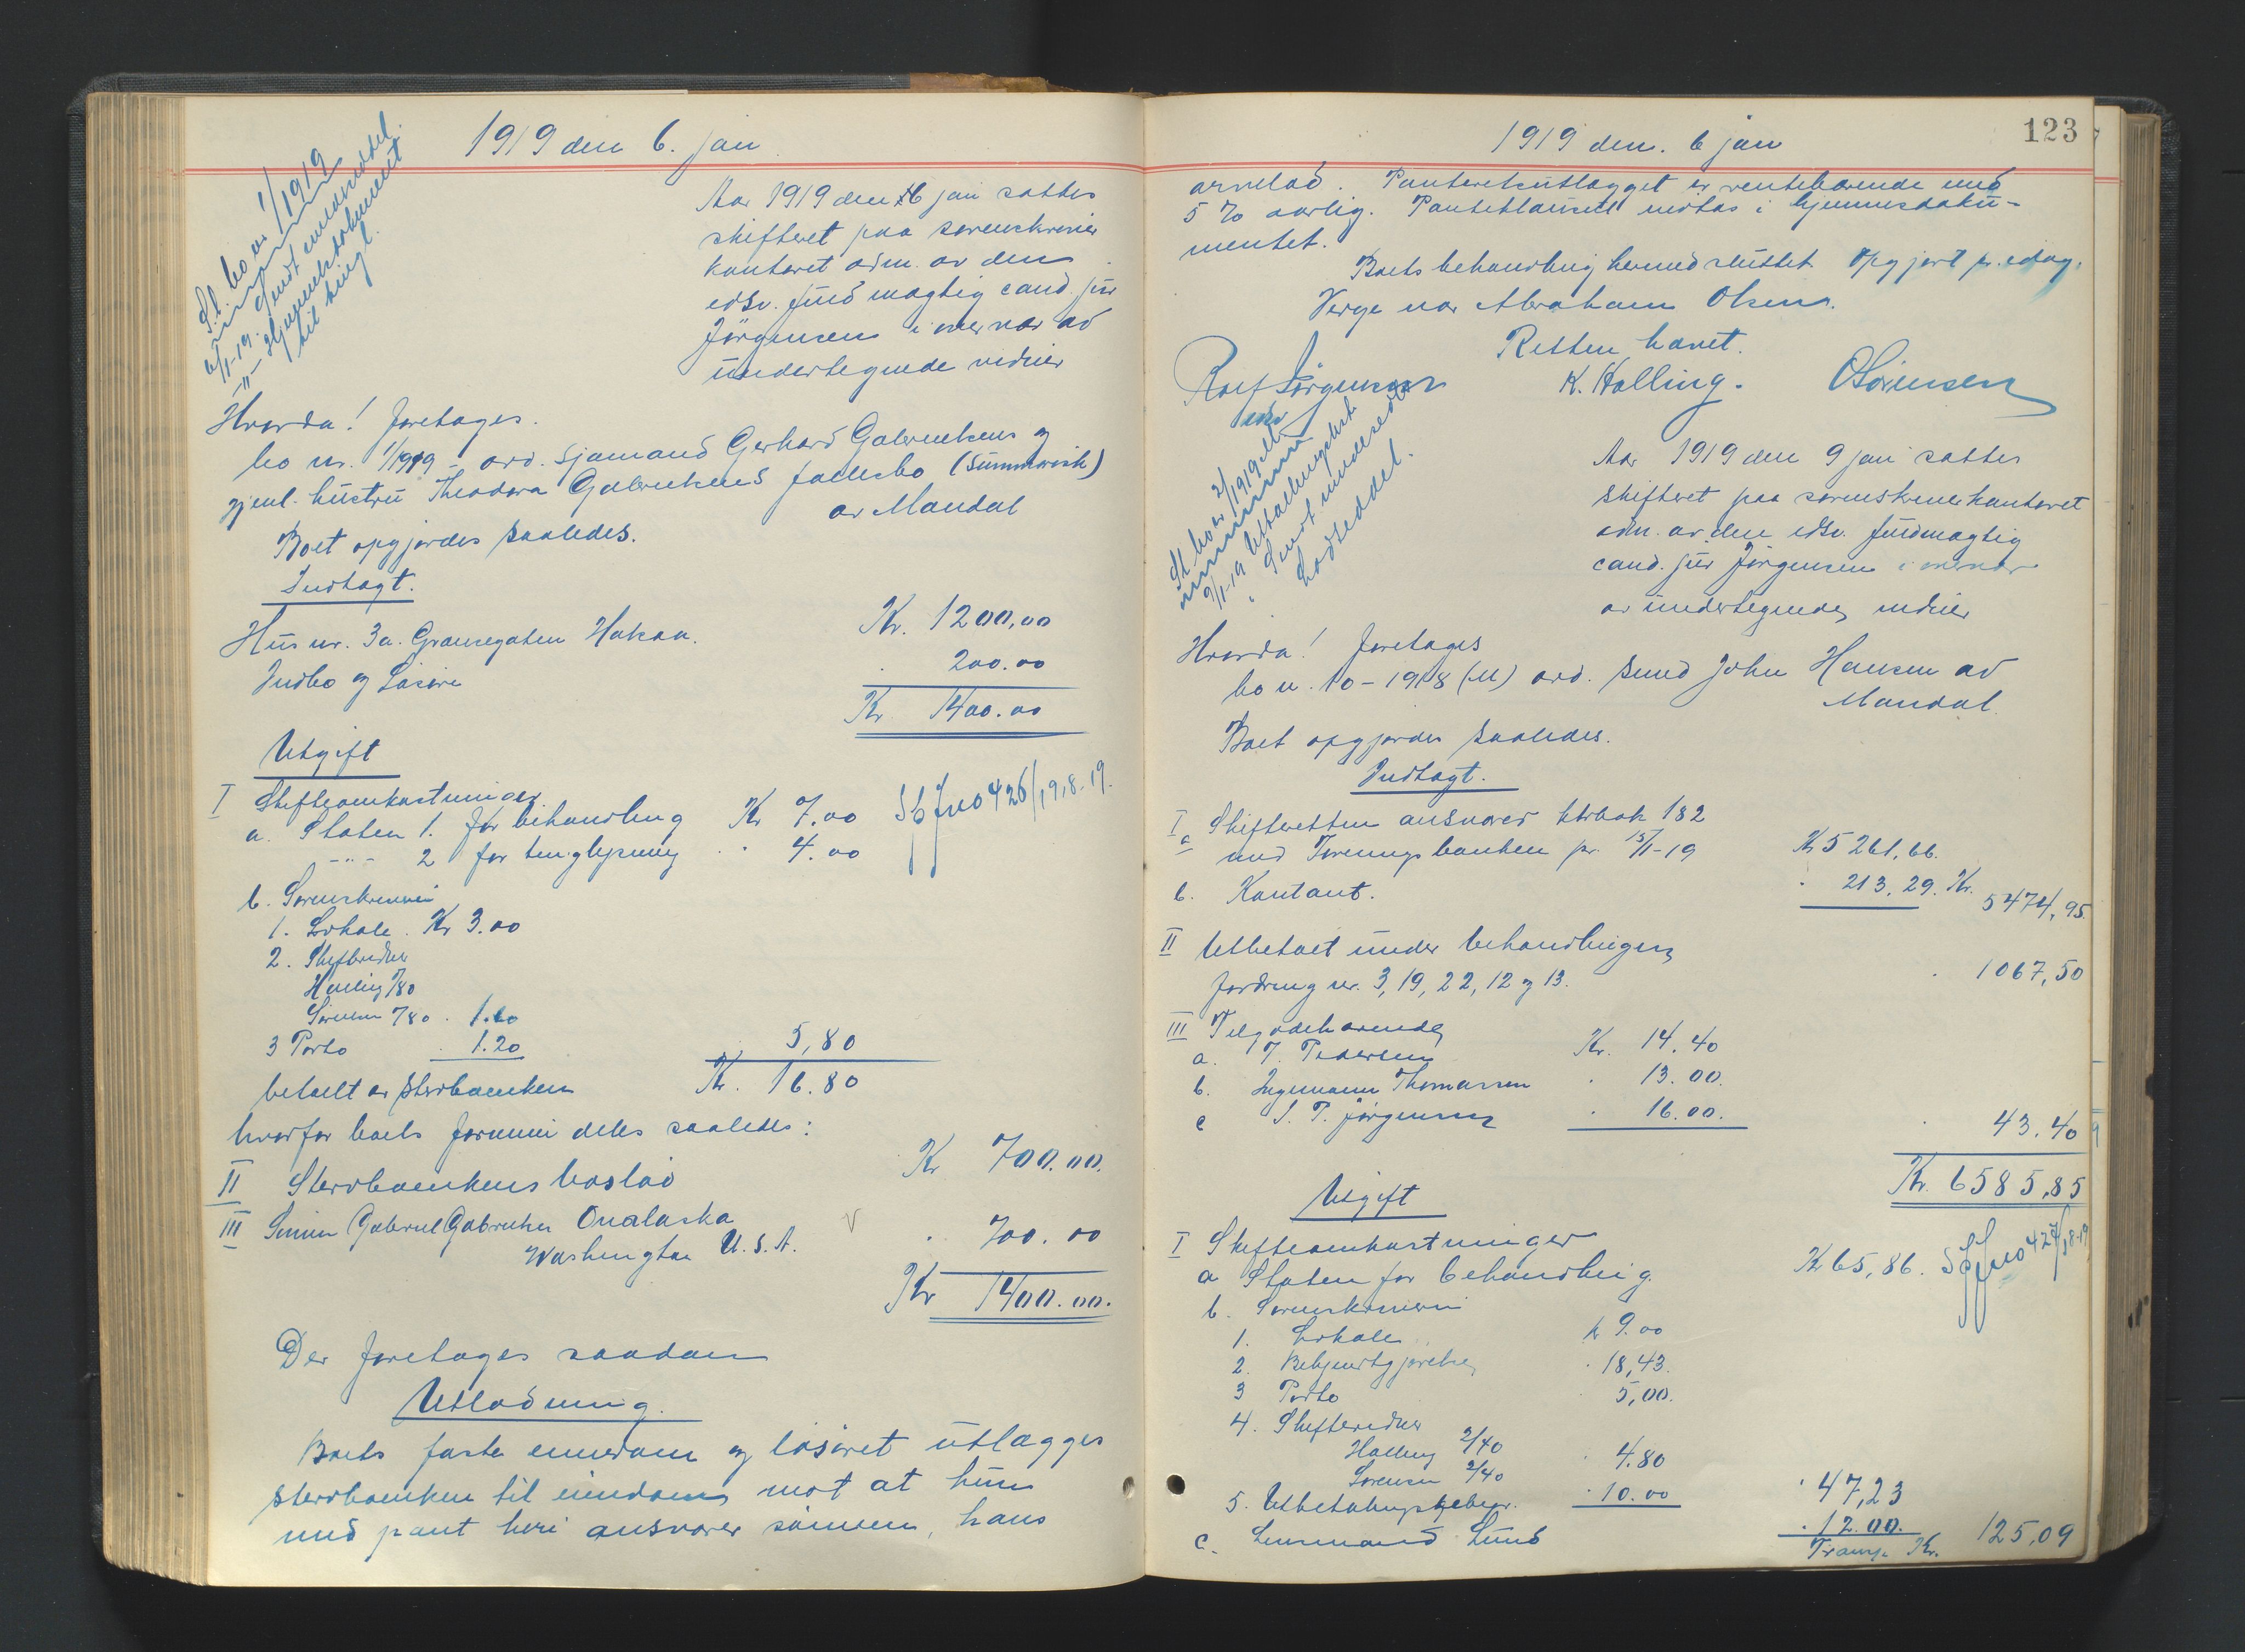 1919 den 6. jan
St. bo nr 1/1919
6/1-19. Sendt
-"- Hjemmelsdokument
til tingl.
Aar 1919 den 6 jan sattes
skifteret paa sorenskriver
kontoret adm. av den
edsv. fuldmægtig cand. jur
Jörgensen i overvær av
undertegnede vidner
Hvorda! foretages.
bo nr. 1/1919 - avd. sjømand Gerhard Gabrielsens og
gjenl. hustru Theodora Gabrielsens fællesbo (summarisk)
av Mandal
Boet opgjordes saaledes.
Indtægt.
Hus nr. 3a. Grænsegaten Halsaa. Kr. 1200,00
Indbo og Løsøre . 200.00
Kr 1400.00
Utgift
I Skifteomkostninger
a. Staten 1. for behandling Kr 7.00 Sb jno 426/1918-19.
-"- 2 for tinglysning " 4.00
b. Sorenskriveren
1. Lokale. Kr 3.00
2. Skiftevidner
Halling /80
Sørensen /80 . 1.60
3 Porto . 1.20 5,80
betalt av sterboenken Kr. 16.80
hvorfor boets formue deles saaledes:
II Sterboenkens boslod Kr 700.00.
III Sønnen Gabriel Gabrielsen Onalaska
Washington U.S.A. V . 700.00
Kr 1400.00.
Der foretages saadan
Utlodning.
Boets faste eiendom og løsøret utlægges
sterboenken til eiendom mot at hun
med pant heri ansvarer sønnen, hans
1919 den. 6 jan
123
arvelod. Panteretsutlægget er rentebærende med
5 % aarlig. Panteklausul indtas i hjemmelsdoku-
mentet.
Boets behandling hermed sluttet. Opgjort pr. idag.
Verge var Abraham Olsen.
Retten hævet.
Rolf Jørgensen K. Halling. O Sörensen
edsv
St bo nr 2/1919 M
9/1-19 Utbetalingsliste
" Sendt
Lodseddel.
Aar 1919 den 9 jan sattes
skifteret paa sorenskriverkontoret
adm. av den edsv. fuldmægtig
cand. jur Jörgensen i overvær
av undertegnede vidner
Hvorda! foretages
bo nr. 10-1918 (M) avd. smed John Hansen av
Mandal.
Boet opgjordes saaledes.
Indtægt.
I Skifteretten ansvarer ktrbok 182
a med Foreningsbanken pr. 15/1-19 Kr 5261,66.
b. Kontant. . 213,29. Kr. 5474,95
II Utbetalt under behandlingen
fordring nr. 3, 19, 22, 12 og 13. . 1067,50
III Tilgodehavende
a. T. Pedersen Kr. 14.40
b. Ingemann Thomassen . 13.00.
c S. P. Jörgensen . 16.00. . 43.40
Kr. 6585,85
Utgift
I Skifteomkostninger
a Staten for behandling. Kr 65,86. Sb jno 427/18-19
b. Sorenskriveren
1. Lokale kr 9.00
2. Bekjendtgjørelse . 18,43.
3 Porto . 5,00.
4. Skiftevidner
Halling 2/40
Sørensen 2/40 . 4.80
5. Utbetalingsgebyr. . 10.00 . 47,23
c. Lensmand Lund . 12.00. 125,09
Transp. Kr.